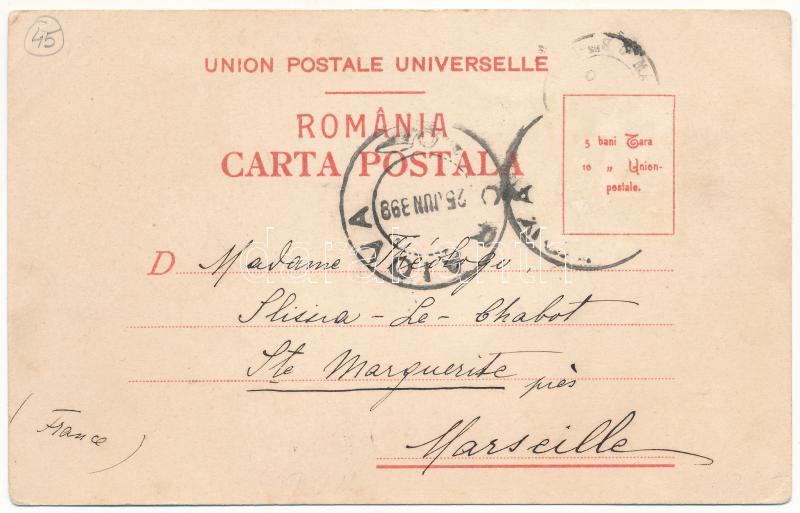 45
UNION POSTALE UNIVERSELLE
ROMÂNIA
CARTA POSTALA
5 bani Ţara
10 „ Union-
postale.
25 JUN 3 99
D Madame Théologo,
- Le - Chabot
Ste Marguerite près
Marseille
(France)